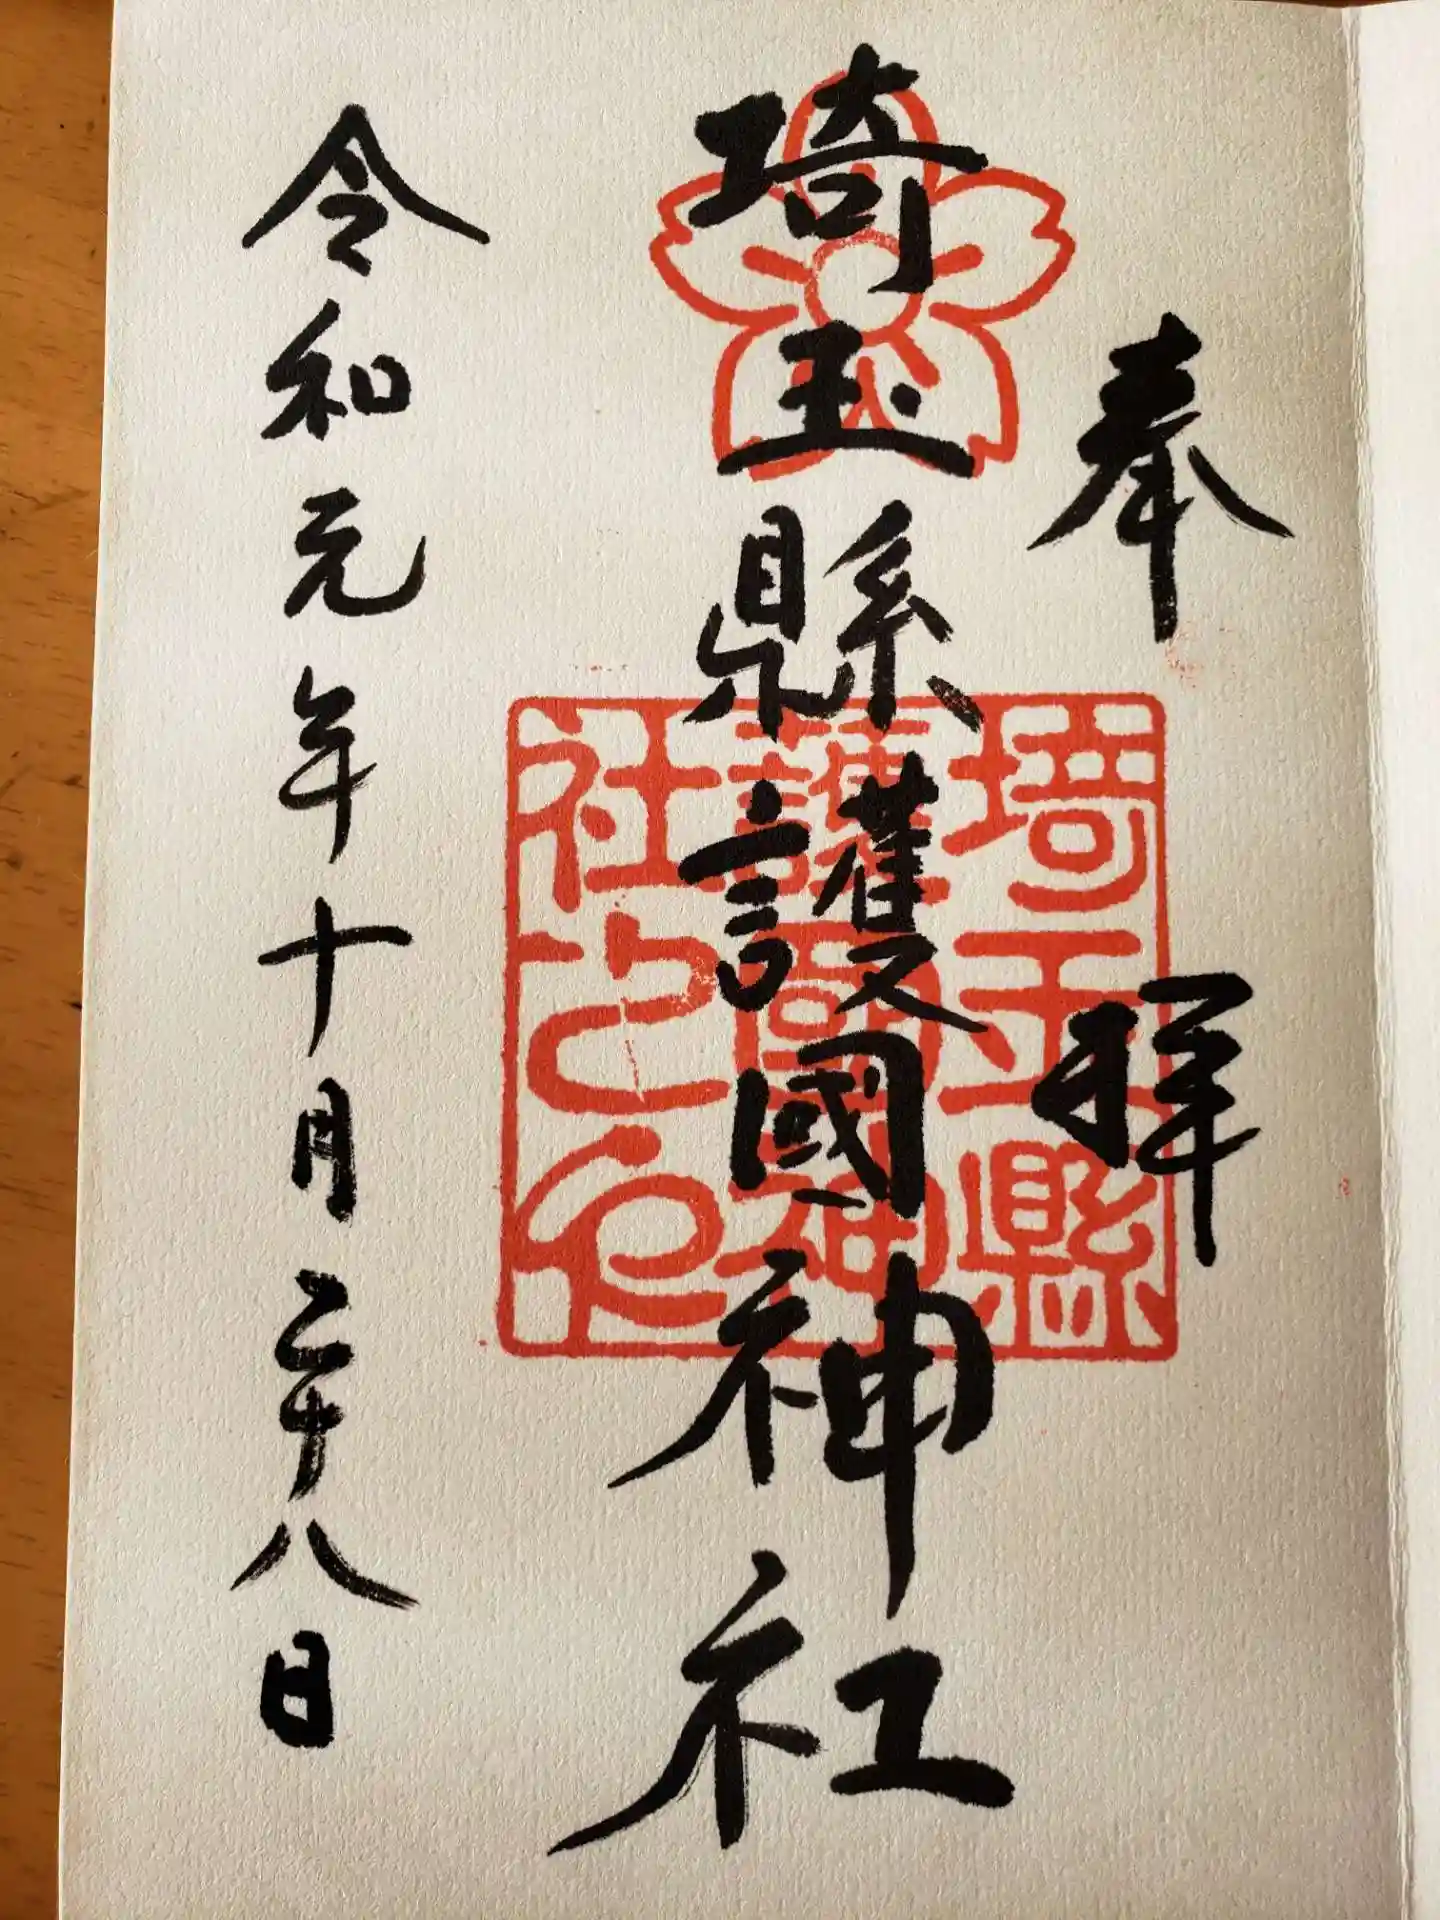 奉拝
埼玉縣護國神社
令和元年十月二十八日
埼玉縣
護國神
社之印